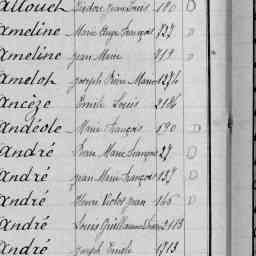 Allouet Isidore Jean Louis 190 D
Ameline Marie Ange François 727 D
Ameline Jean Marie 919 D
Amelot Joseph Pierre Marie 1276
Ancèze Emile Louis 2186
Andéole Marie François 190 D
André Pierre Marie François 27 D
André Jean Marie François 137 D
André Henri Victor Jean 166 D
André Louis Guillaume 2113
André Joseph Emile 1713